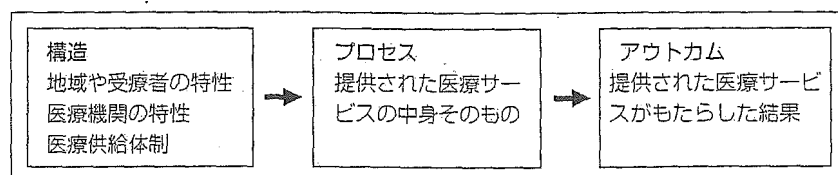 構造
地域や受療者の特性
医療機関の特性
医療供給体制
プロセス
提供された医療サー
ビスの中身そのもの
アウトカム
提供された医療サービ
スがもたらした結果